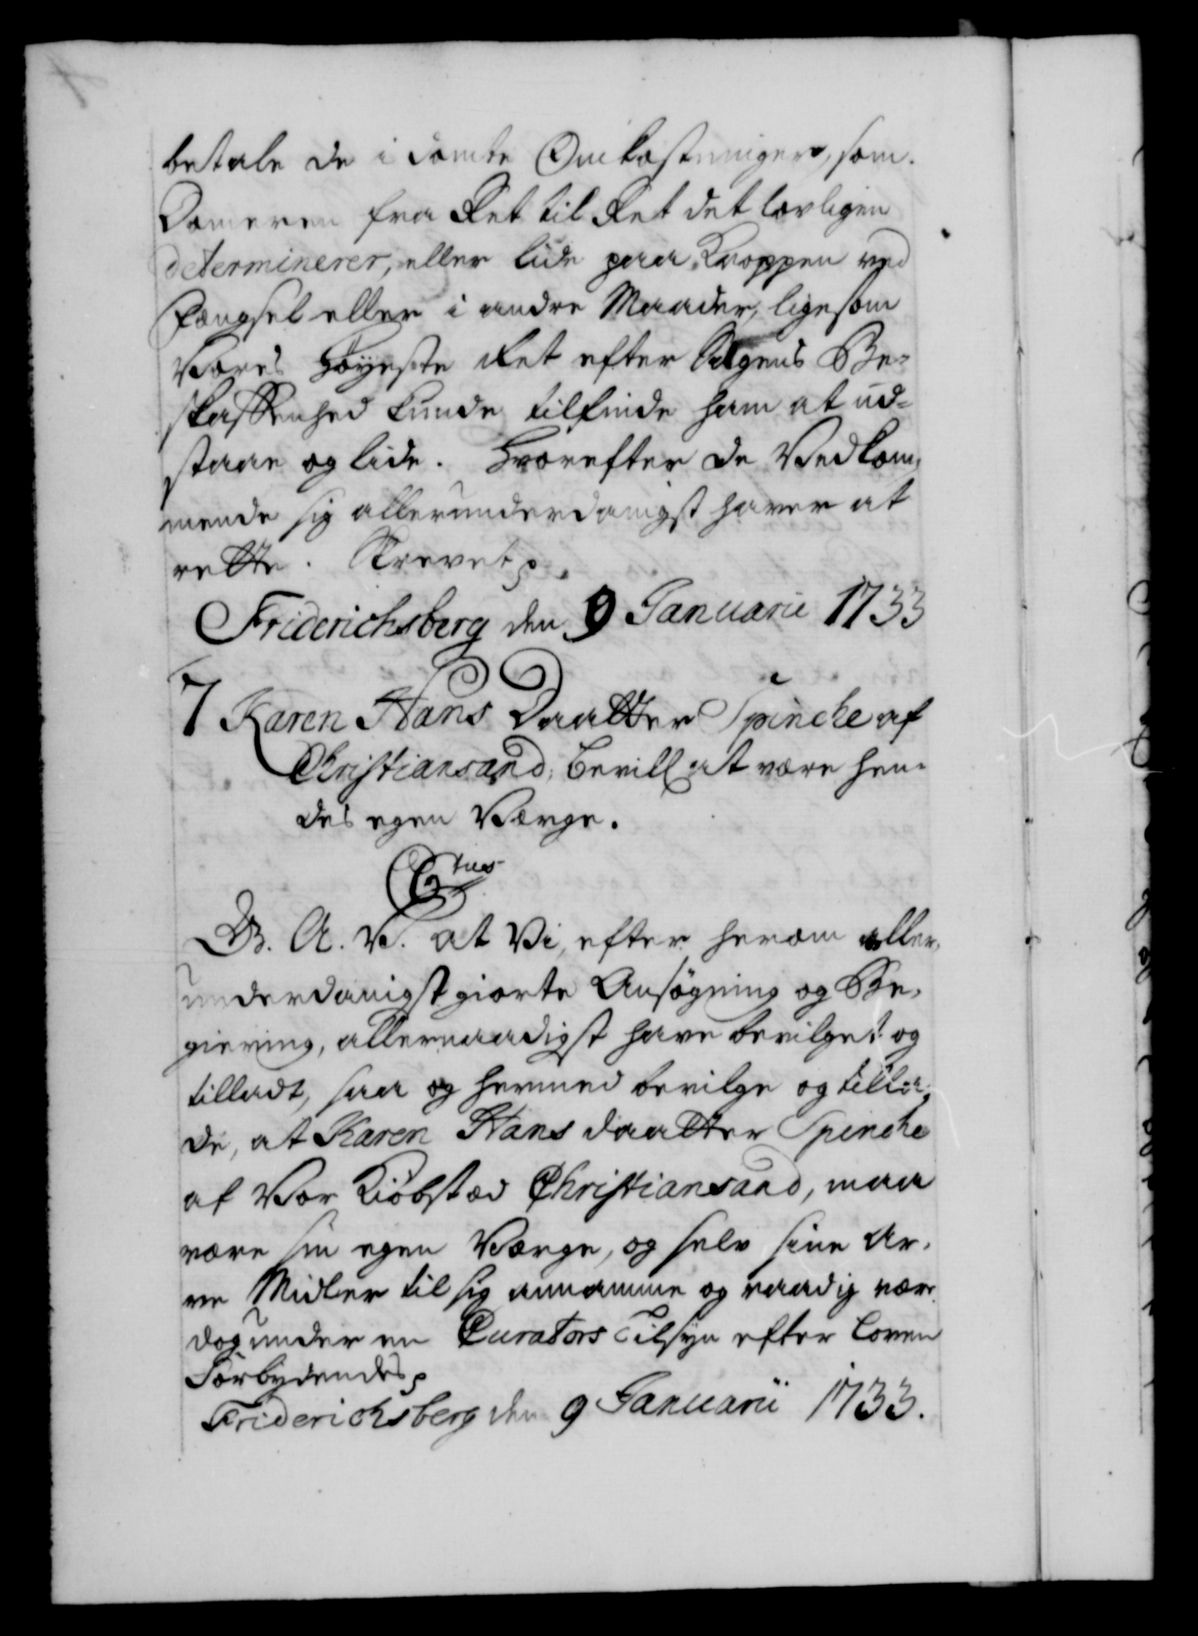 betale de i dömte Omkostninger, som
Domeren fra Ret til Ret det lovligen
determinerer, eller lide paa Kroppen ved
Fængsel eller i andre Maader, ligesom
Vores Höyeste Ret efter Sagens Be-
skaffenhed kunde tilfinde ham at ud-
staae og lide. Hvorefter de Vedkom-
mende sig allerunderdanigst haver at
rette. Skrevet p
Friderichsberg den 9 Januarii 1733
7 Karen Hans Daatter Spincke af
Christiansand, Bevill at være hen-
des egen Værge.
C6tus
G. A. V. at Vi, efter herom aller-
underdanigst giorte Ansøgning og Be-
giering, allernaadigst have bevilget og
tilladt, saa og hermed bevilge og tilla-
de, at Karen Hans daatter Spincke
af Vor Kiöbstæd Christiansand, maa
være sin egen Værge, og selv sine Ar-
ve Midler til sig annamme og raadig være
dog under en Curators Tilsyn efter Loven
Forbydendes p
Friderichsberg den 9 Januarii 1733.